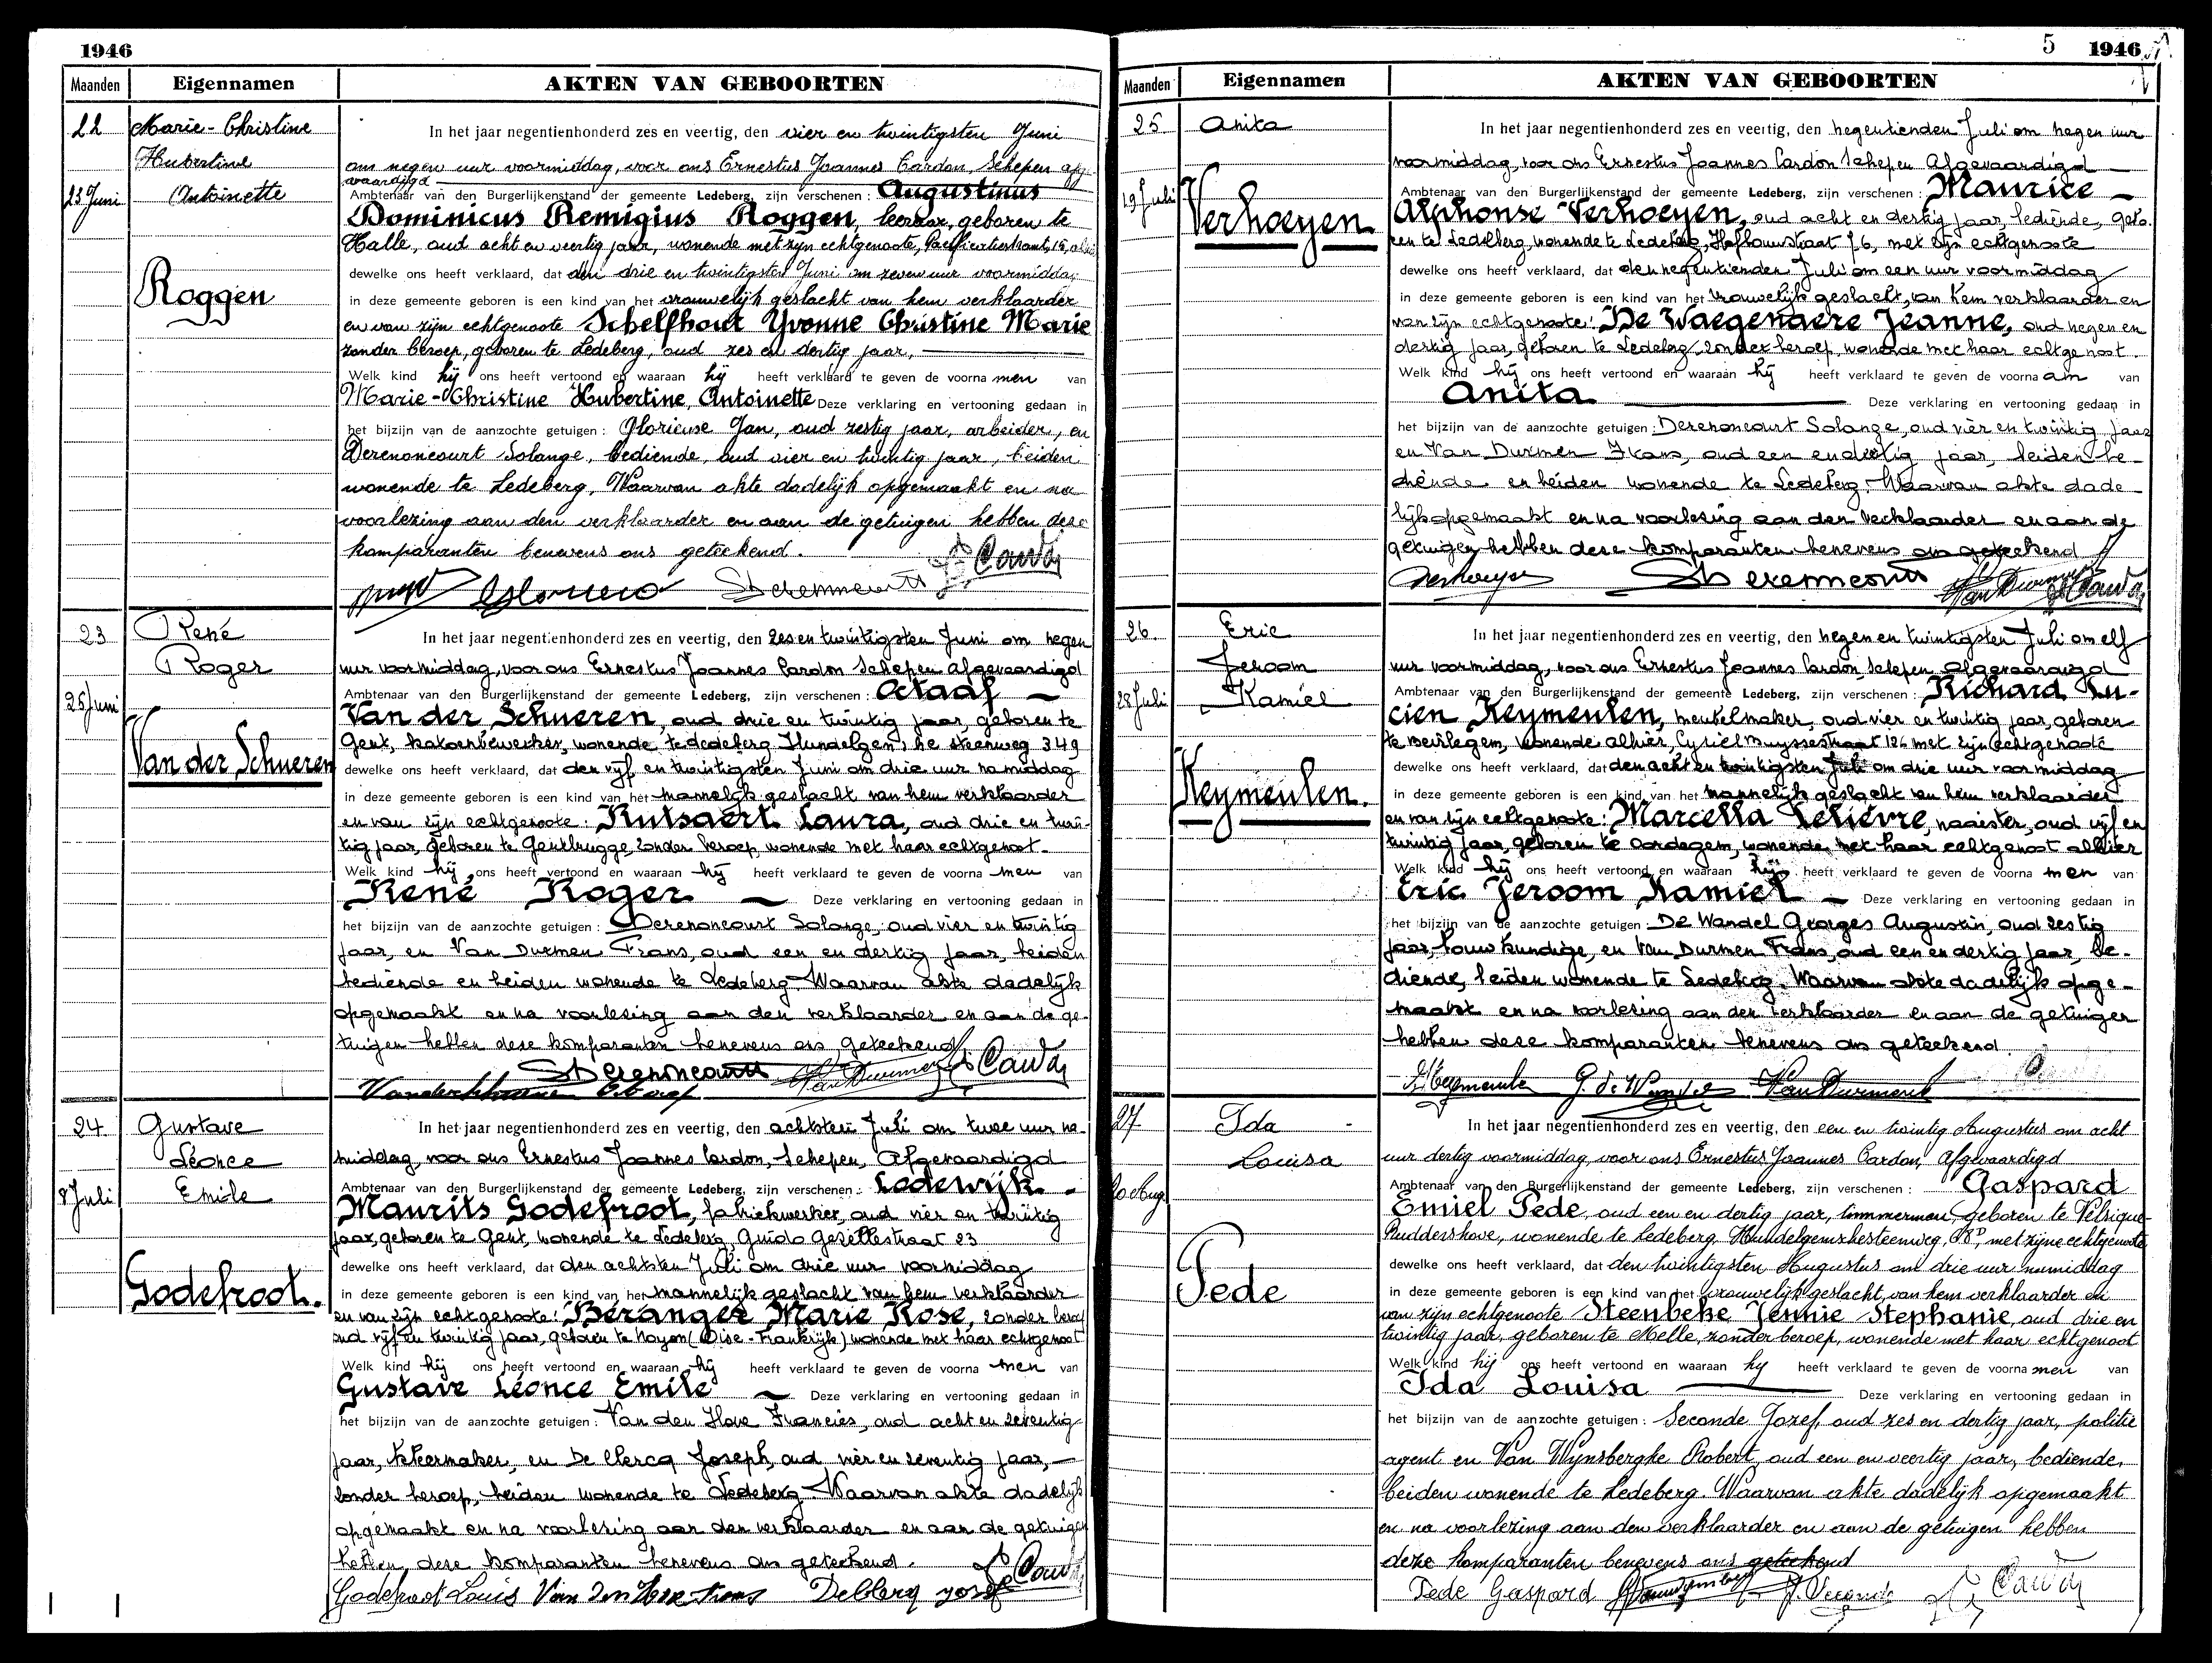 1946
Maanden Eigennamen AKTEN VAN GEBOORTEN
22 Marie-Christine
Hubertine
23 Juni Antoinette
Roggen
In het jaar negentienhonderd zes en veertig, den vier en twintigsten Juni
om negen uur voormiddag, voor ons Ernestus Joannes Cardon, Schepen afge-
vaardigd
Ambtenaar van den Burgerlijkenstand der gemeente Ledeberg, zijn verschenen : Augustinus
Dominicus Remigius Roggen, leeraar, geboren te
Halle, oud acht en veertig jaar, wonende met zijn echtgenoote, Pacificatiestraat, 15, alhier
dewelke ons heeft verklaard, dat den drie en twintigsten Juni om zeven uur voormiddag
in deze gemeente geboren is een kind van het vrouwelijk geslacht van hem verklaarder
en van zijn echtgenoote Schelfhout Yvonne Christine Marie
zonder beroep, geboren te Ledeberg, oud zes en dertig jaar,
Welk kind hij ons heeft vertoond en waaraan hij heeft verklaard te geven de voorna men van
Marie-Christine Hubertine, Antoinette Deze verklaring en vertooning gedaan in
het bijzijn van de aanzochte getuigen : Glorieuse Jan, oud zestig jaar, arbeider, en
Derenoncourt Solange, bediende, oud vier en twintig jaar, beiden
wonende te Ledeberg, Waarvan akte dadelijk opgemaakt en na
voorlezing aan den verklaarder en aan de getuigen hebben deze
komparanten benevens ons geteekend.
23 René
Roger
25 Juni
Van der Schueren
In het jaar negentienhonderd zes en veertig, den zes en twintigsten Juni om negen
uur voormiddag, voor ons Ernestus Joannes Cardon Schepen Afgevaardigd
Ambtenaar van den Burgerlijkenstand der gemeente Ledeberg, zijn verschenen : Octaaf
Van der Schueren, oud drie en twintig jaar, geboren te
Gent, katoenbewerker, wonende te Ledeberg Hundelgemsche steenweg 349
dewelke ons heeft verklaard, dat den vijf en twintigsten Juni om drie uur namiddag
in deze gemeente geboren is een kind van het mannelijk geslacht van hem verklaarder
en van zijn echtgenoote : Rutsaert Laura, oud drie en twin-
tig jaar, geboren te Gentbrugge, zonder beroep, wonende met haar echtgenoot.
Welk kind hij ons heeft vertoond en waaraan hij heeft verklaard te geven de voorna men van
René Roger Deze verklaring en vertooning gedaan in
het bijzijn van de aanzochte getuigen : Derenoncourt Solange, oud vier en twintig
jaar, en Van Durmen Frans, oud een en dertig jaar, beiden
bediende en beiden wonende te Ledeberg. Waarvan akte dadelijk
opgemaakt en na voorlesing aan den verklaarder en aan de ge-
tuigen hebben dese komparanten benevens ons geteekend
24. Gustave
Léonce
8 Juli Emile
Godefroot.
In het jaar negentienhonderd zes en veertig, den achtsten Juli om twee uur na-
middag, voor ons Ernestus Joannes Cardon, Schepen, Afgevaardigd
Ambtenaar van den Burgerlijkenstand der gemeente Ledeberg, zijn verschenen : Lodewijk
Maurits Godefroot, fabriekwerker, oud vier en twintig
jaar, geboren te Gent, wonende te Ledeberg, Guido Gezellestraat 23
dewelke ons heeft verklaard, dat den achtsten Juli om drie uur voormiddag
in deze gemeente geboren is een kind van het mannelijk geslacht van hem verklaarder
en van zijn echtgenoote : Béranger Marie Rose, zonder beroep
oud vijf en twintig jaar, geboren te Noyon (Oise - Frankrijk) wonende met haar echtgenoot
Welk kind hij ons heeft vertoond en waaraan hij heeft verklaard te geven de voorna men van
Gustave Léonce Emile Deze verklaring en vertooning gedaan in
het bijzijn van de aanzochte getuigen : Van den Hove Francies, oud acht en seventig
jaar, kleermaker, en De Clercq Joseph, oud vier en seventig jaar,
zonder beroep, beiden wonende te Ledeberg. Waarvan akte dadelijk
opgemaakt en na voorlesing aan den verklaarder en aan de getuigen
hebben dese komparanten benevens ons geteekend.
Godefroot Louis Van den Hove Frans Declercq Josef
5 1946
Maanden Eigennamen AKTEN VAN GEBOORTEN
25 Anita
19 Juli
Verhoeyen
In het jaar negentienhonderd zes en veertig, den negentienden Juli om negen uur
voormiddag, voor ons Ernestus Joannes Cardon Schepen Afgevaardigd
Ambtenaar van den Burgerlijkenstand der gemeente Ledeberg, zijn verschenen : Maurice
Alphonse Verhoeyen, oud acht en dertig jaar, bediende, gebo-
ren te Ledeberg, wonende te Ledeberg, Hofbouwstraat 76, met zijn echtgenoote
dewelke ons heeft verklaard, dat den negentienden Juli om een uur voormiddag
in deze gemeente geboren is een kind van het vrouwelijk geslacht, van hem verklaarder en
van zijn echtgenoote : De Waegenaere Jeanne, oud negen en
dertig jaar, geboren te Ledeberg, zonder beroep, wonende met haar echtgenoot.
Welk kind hij ons heeft vertoond en waaraan hij heeft verklaard te geven de voorna am van
Anita Deze verklaring en vertooning gedaan in
het bijzijn van de aanzochte getuigen : Derenoncourt Solange, oud vier en twintig jaar
en Van Durmen Frans, oud een en dertig jaar, beiden be-
diende en beiden wonende te Ledeberg. Waarvan akte dade-
lijk opgemaakt en na voorlesing aan den verklaarder en aan de
getuigen hebben dese komparanten benevens ons geteekend
26. Eric
Jeroom
28 Juli Kamiel
Keymeulen.
In het jaar negentienhonderd zes en veertig, den negen en twintigsten Juli om elf
uur voormiddag, voor ons Ernestus Joannes Cardon, Schepen, Afgevaardigd
Ambtenaar van den Burgerlijkenstand der gemeente Ledeberg, zijn verschenen : Richard Lu-
cien Keymeulen, meubelmaker, oud vier en twintig jaar, geboren
te Beirlegem, wonende alhier, Cyriel Buyssestraat 126 met zijn echtgenoote
dewelke ons heeft verklaard, dat den acht en twintigsten Juli om drie uur voormiddag
in deze gemeente geboren is een kind van het mannelijk geslacht van hem verklaarder
en van zijn echtgenoote : Marcella Leliévre, naaister, oud vijf en
twintig jaar, geboren te Oordegem, wonende met haar echtgenoot alhier
Welk kind hij ons heeft vertoond en waaraan hij heeft verklaard te geven de voorna men van
Eric Jeroom Kamiel Deze verklaring en vertooning gedaan in
het bijzijn van de aanzochte getuigen : De Wandel Georges Augustin, oud zestig
jaar, bouwkundige, en Van Durmen Frans, oud een en dertig jaar, be-
diende, beiden wonende te Ledeberg. Waarvan akte dadelijk opge-
maakt en na voorlesing aan den verklaarder en aan de getuigen
hebben dese komparanten benevens ons geteekend.
27 Ida
Louisa
20 Aug.
Pede
In het jaar negentienhonderd zes en veertig, den een en twintig Augustus om acht
uur dertig voormiddag, voor ons Ernestus Joannes Cardon, Afgevaardigd
Ambtenaar van den Burgerlijkenstand der gemeente Ledeberg, zijn verschenen : Gaspard
Emiel Pede, oud een en dertig jaar, timmerman, geboren te Velsique-
Ruddershove, wonende te Ledeberg, Hundelgemschesteenweg, met zijne echtgenoote
dewelke ons heeft verklaard, dat den twintigsten Augustus om drie uur namiddag
in deze gemeente geboren is een kind van het vrouwelijk geslacht, van hem verklaarder en
van zijn echtgenoote Steenbeke Jennie Stephanie, oud drie en
twintig jaar, geboren te Melle, zonder beroep, wonende met haar echtgenoot
Welk kind hij ons heeft vertoond en waaraan hij heeft verklaard te geven de voorna men van
Ida Louisa Deze verklaring en vertooning gedaan in
het bijzijn van de aanzochte getuigen : Seconde Jozef, oud zes en dertig jaar, politie
agent en Van Wynsberghe Robert, oud een en veertig jaar, bediende,
beiden wonende te Ledeberg. Waarvan akte dadelijk opgemaakt
en na voorlezing aan den verklaarder en aan de getuigen hebben
deze komparanten benevens ons geteekend
Pede Gaspard